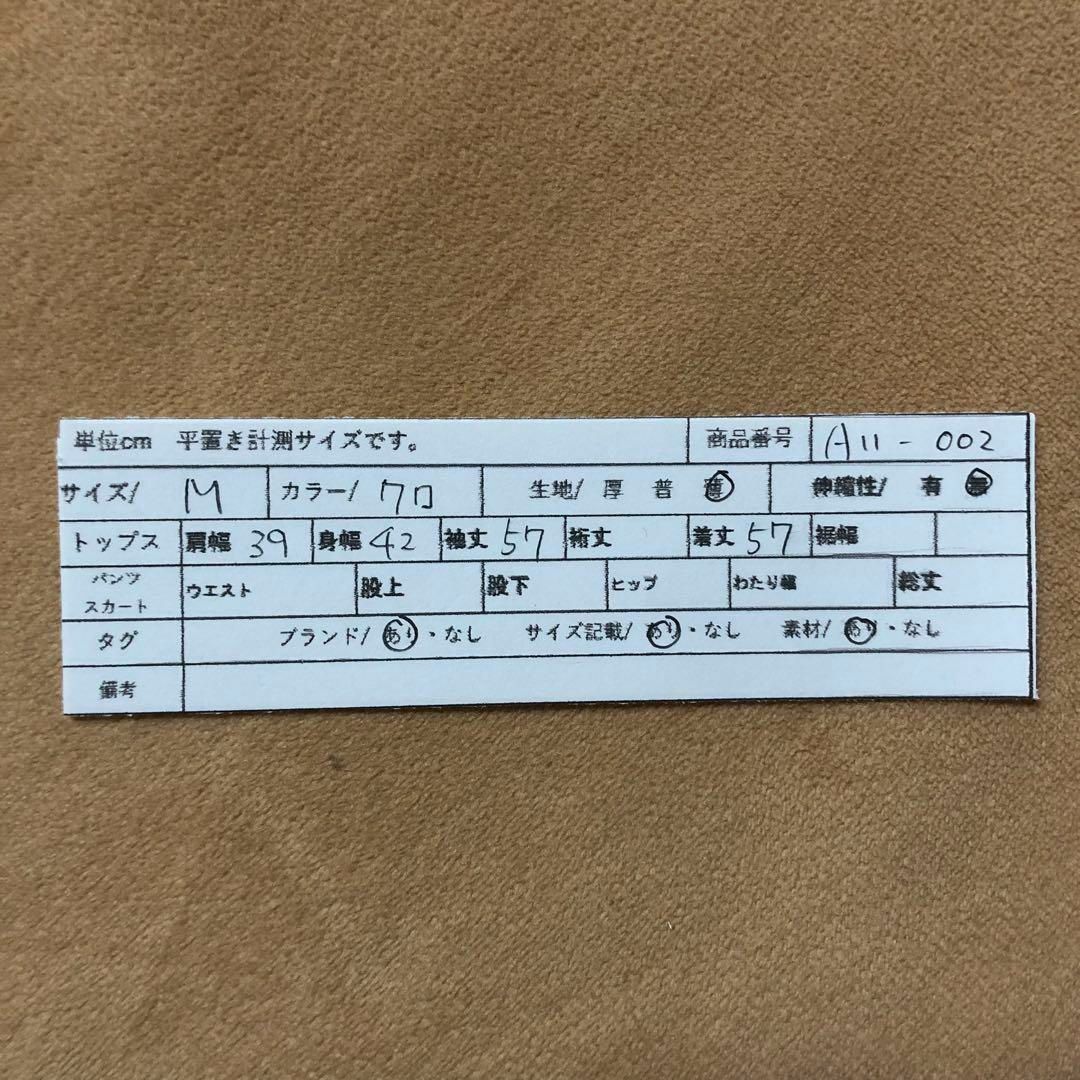 単位cm 平置き計測サイズです。 商品番号 A11-002
サイズ/ M カラー/ クロ 生地/ 厚 普 薄 伸縮性/ 有 無
トップス 肩幅 39 身幅 42 袖丈 57 裄丈 着丈 57 裾幅
パンツ スカート ウエスト 股上 股下 ヒップ わたり幅 総丈
タグ ブランド/ あり・なし サイズ記載/ あり・なし 素材/ あり・なし
備考